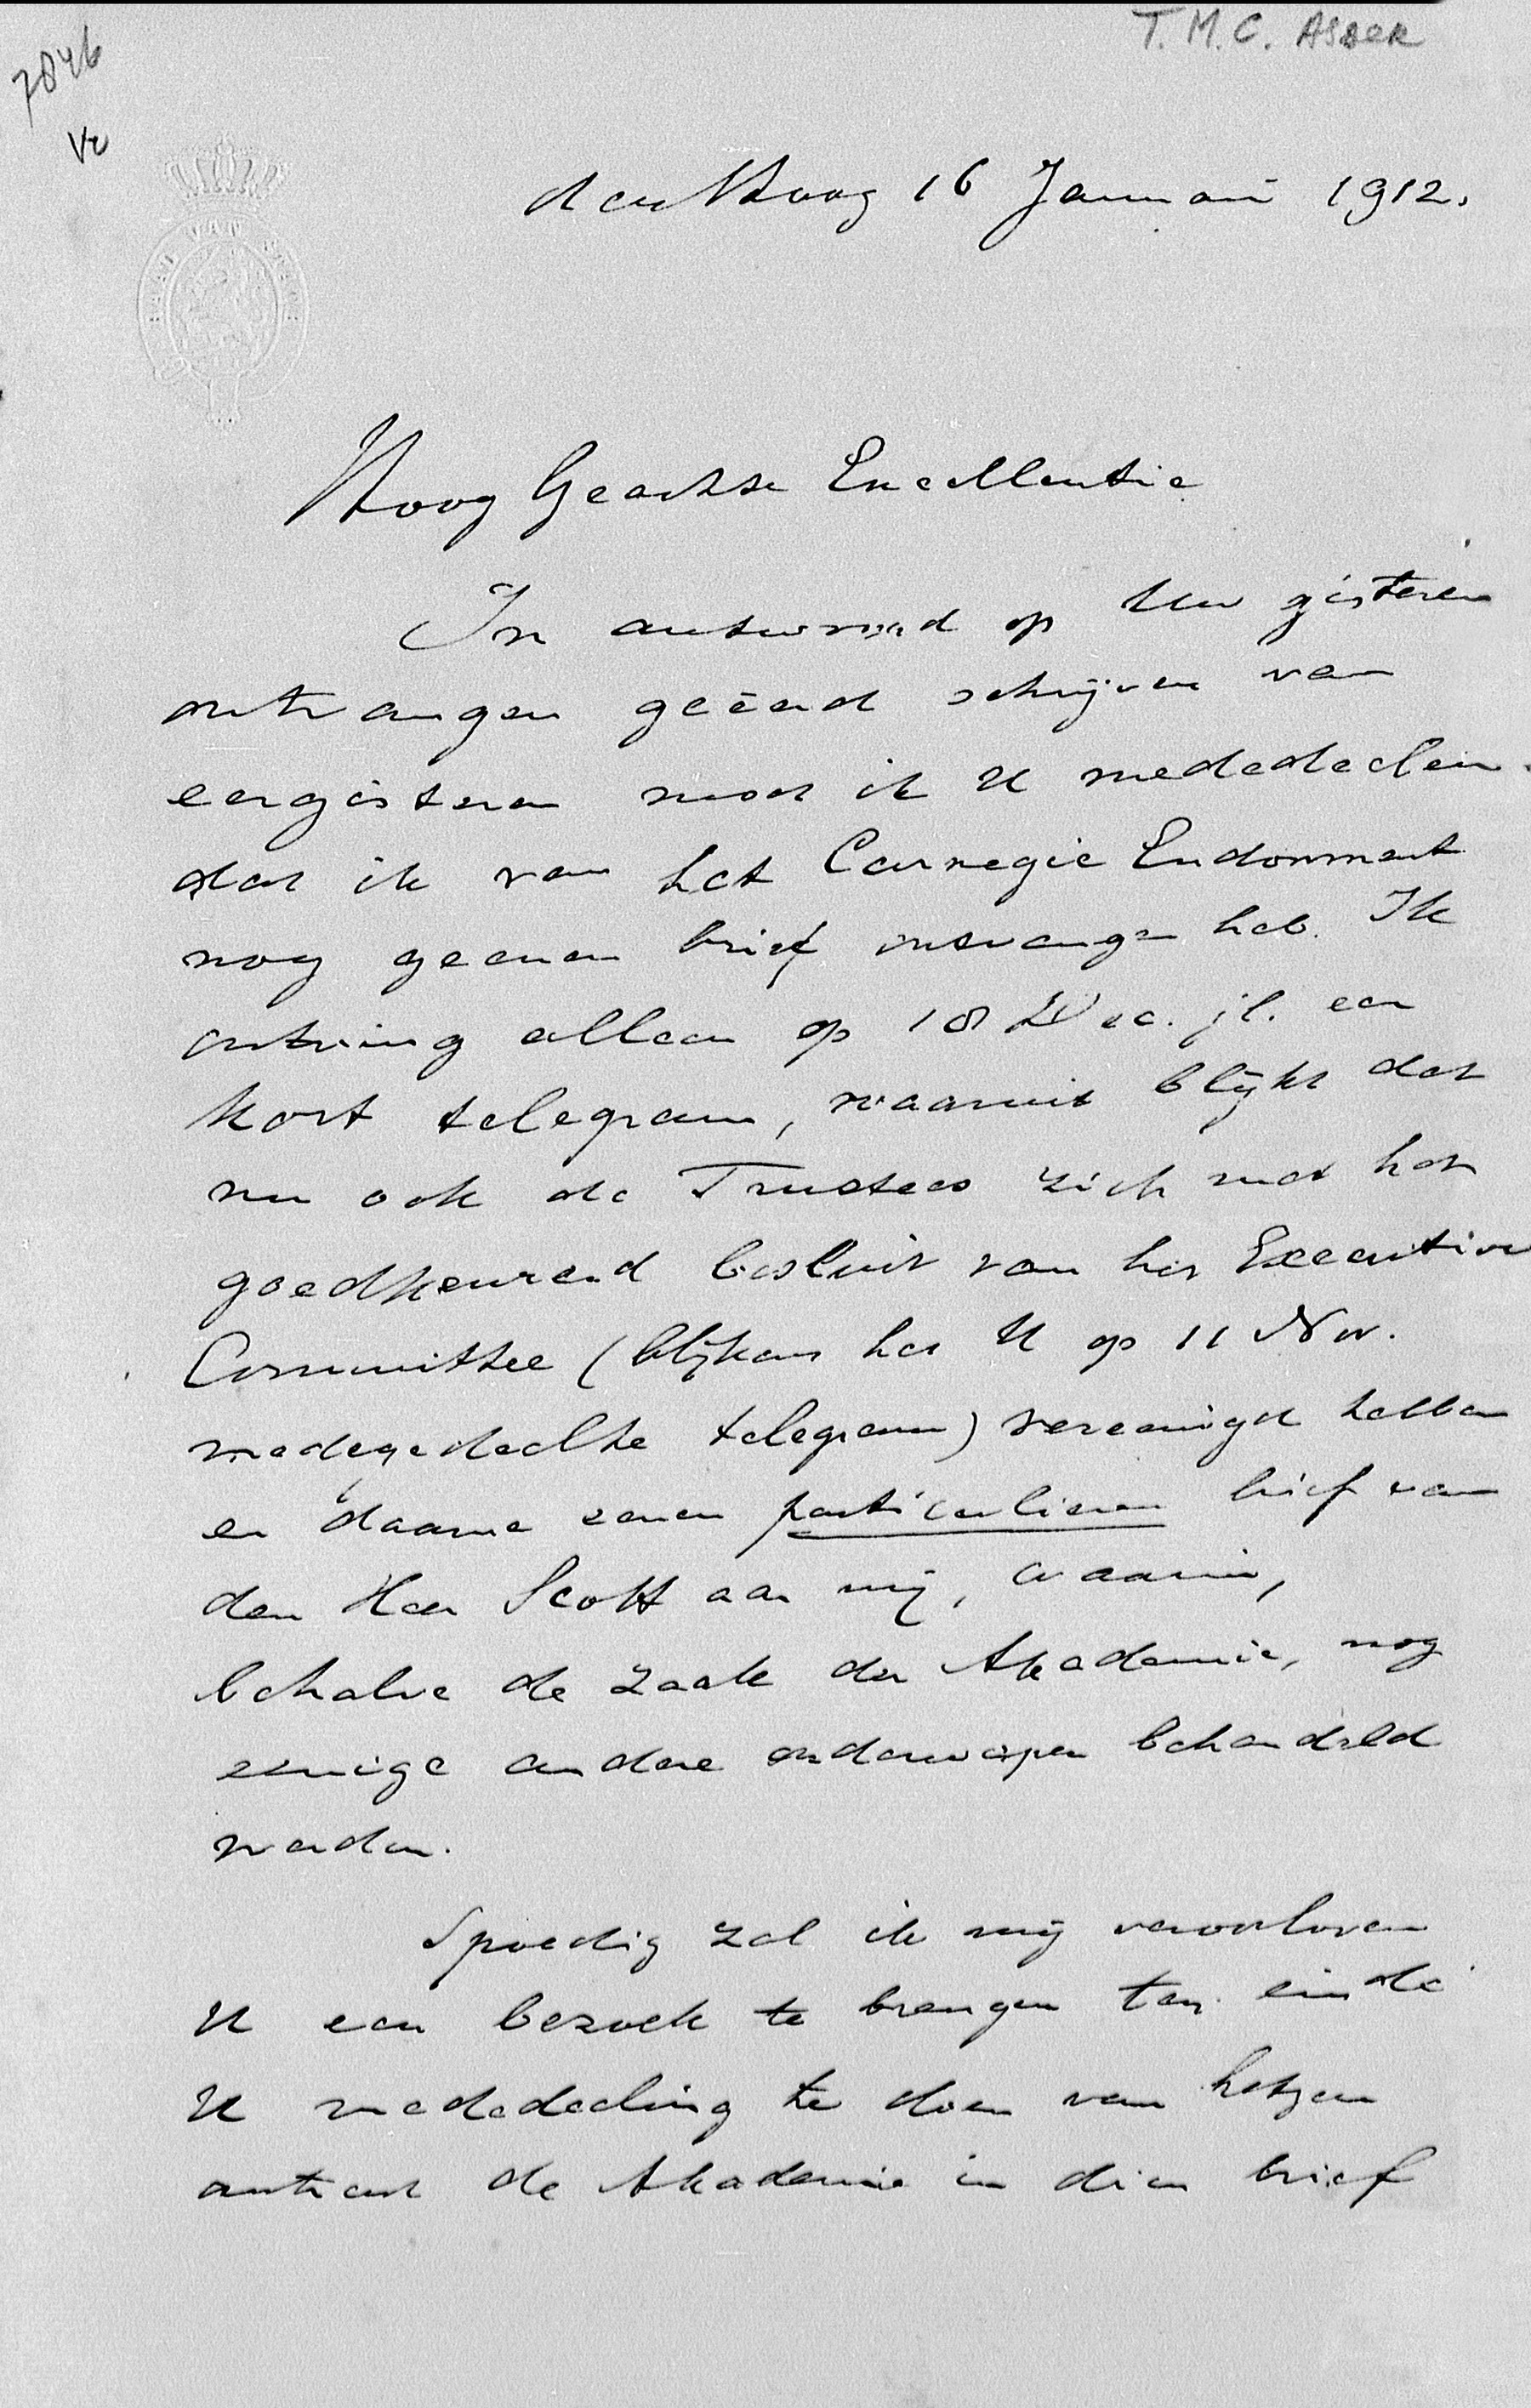 T. M. C. ASSER
7846
den Haag 16 Januari 1912.
RAAD VAN STATE
Hoog Geachte Excellentie
In antwoord op Uw gisteren
ontvangen geëerd schrijven van
eergisteren moet ik U mededeelen
dat ik van het Carnegie Endowment
nog geenen brief ontvangen heb. Ik
ontving alleen op 18 Dec. jl. een
kort telegram, waaruit blijkt dat
nu ook de Trustees zich met het
goedkeurend besluit van het Executive
Committee (blijkens het U op 11 Nov.
medegedeelde telegram) vereenigd hebben
en daarna eenen particulieren brief van
den Heer Scott aan mij, waarin,
behalve de zaak der Akademie, nog
eenige andere onderwerpen behandeld
worden.
Spoedig zal ik mij veroorloven
U een bezoek te brengen ten einde
U mededeeling te doen van hetgeen
omtrent de Akademie in dien brief